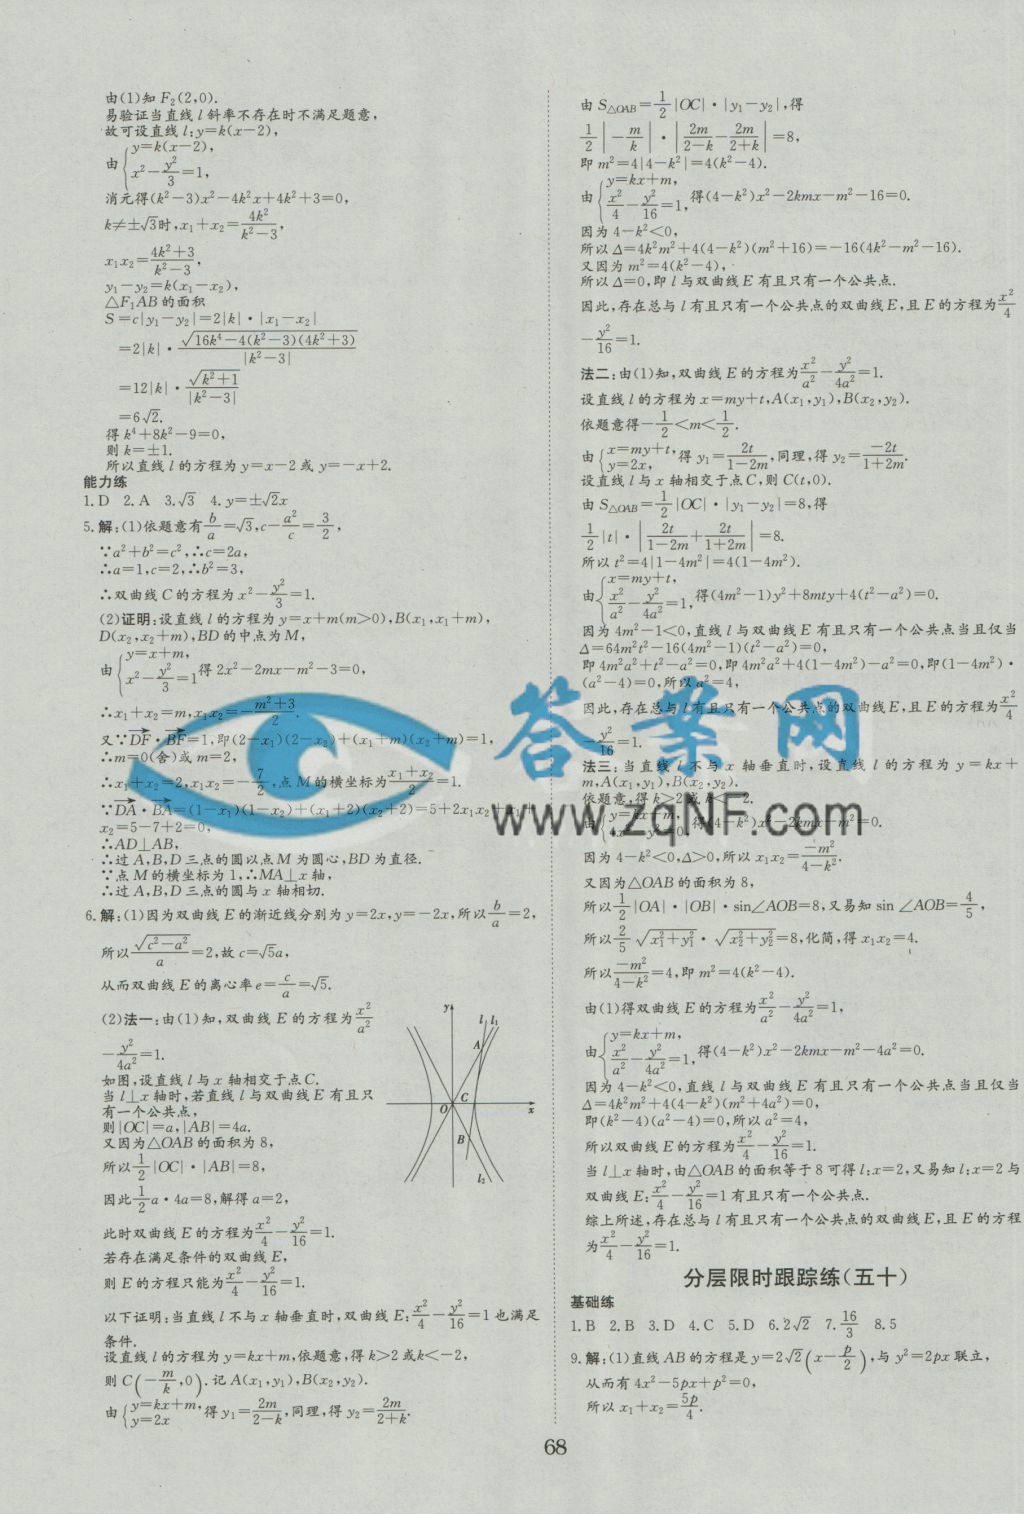 由(1)知F₂(2,0).
易验证当直线l斜率不存在时不满足题意,
故可设直线l:y=k(x−2),
由{y=k(x−2), x²−y²/3=1,
消元得(k²−3)x²−4k²x+4k²+3=0,
k≠±√3时,x₁+x₂=4k²/(k²−3),
x₁x₂=(4k²+3)/(k²−3),
y₁−y₂=k(x₁−x₂),
△F₁AB的面积
S=c|y₁−y₂|=2|k|·|x₁−x₂|
=2|k|·√(16k⁴−4(k²−3)(4k²+3))/|k²−3|
=12|k|·√(k²+1)/|k²−3|
=6√2.
得k⁴+8k²−9=0,
则k=±1.
所以直线l的方程为y=x−2或y=−x+2.
能力练
1.D 2.A 3.√3 4.y=±√2x
5.解:(1)依题意有b/a=√3,c−a²/c=3/2,
∵a²+b²=c²,∴c=2a,
∴a=1,c=2,∴b²=3,
∴双曲线C的方程为x²−y²/3=1.
(2)证明:设直线l的方程为y=x+m(m>0),B(x₁,x₁+m),
D(x₂,x₂+m),BD的中点为M,
由{y=x+m, x²−y²/3=1得2x²−2mx−m²−3=0,
∴x₁+x₂=m,x₁x₂=−(m²+3)/2.
又∵DF·BF=1,即(2−x₁)(2−x₂)+(x₁+m)(x₂+m)=1,
∴m=0(舍)或m=2,
∴x₁+x₂=2,x₁x₂=−7/2,点M的横坐标为(x₁+x₂)/2=1.
∵DA·BA=(1−x₁)(1−x₂)+(x₁+2)(x₂+2)=5+2x₁x₂+x₁+
x₂=5−7+2=0,
∴AD⊥AB,
∴过A,B,D三点的圆以点M为圆心,BD为直径.
∵点M的横坐标为1,∴MA⊥x轴,
∴过A,B,D三点的圆与x轴相切.
6.解:(1)因为双曲线E的渐近线分别为y=2x,y=−2x,所以b/a=2,
所以√(c²−a²)/a=2,故c=√5a,
从而双曲线E的离心率e=c/a=√5.
(2)法一:由(1)知,双曲线E的方程为x²/a²
−y²/4a²=1.
如图,设直线l与x轴相交于点C.
当l⊥x轴时,若直线l与双曲线E有且只
有一个公共点,
则|OC|=a,|AB|=4a.
又因为△OAB的面积为8,
所以1/2|OC|·|AB|=8,
因此1/2a·4a=8,解得a=2,
此时双曲线E的方程为x²/4−y²/16=1.
若存在满足条件的双曲线E,
则E的方程只能为x²/4−y²/16=1.
以下证明:当直线l不与x轴垂直时,双曲线E:x²/4−y²/16=1也满足
条件.
设直线l的方程为y=kx+m,依题意,得k>2或k<−2,
则C(−m/k,0).记A(x₁,y₁),B(x₂,y₂).
由{y=kx+m, y=2x 得y₁=2m/(2−k),同理,得y₂=2m/(2+k).
y
l l₁
A
O C x
B
l₂
由S△OAB=1/2|OC|·|y₁−y₂|,得
1/2|−m/k|·|2m/(2−k)−2m/(2+k)|=8,
即m²=4|4−k²|=4(k²−4).
由{y=kx+m, x²/4−y²/16=1,得(4−k²)x²−2kmx−m²−16=0.
因为4−k²<0,
所以Δ=4k²m²+4(4−k²)(m²+16)=−16(4k²−m²−16).
又因为m²=4(k²−4),
所以Δ=0,即l与双曲线E有且只有一个公共点.
因此,存在总与l有且只有一个公共点的双曲线E,且E的方程为x²/4
−y²/16=1.
法二:由(1)知,双曲线E的方程为x²/a²−y²/4a²=1.
设直线l的方程为x=my+t,A(x₁,y₁),B(x₂,y₂).
依题意得−1/2<m<1/2.
由{x=my+t, y=2x, 得y₁=2t/(1−2m),同理,得y₂=−2t/(1+2m).
设直线l与x轴相交于点C,则C(t,0).
由S△OAB=1/2|OC|·|y₁−y₂|=8,得
1/2|t|·|2t/(1−2m)+2t/(1+2m)|=8.
所以t²=4|1−4m²|=4(1−4m²).
由{x=my+t, x²/a²−y²/4a²=1,得(4m²−1)y²+8mty+4(t²−a²)=0.
因为4m²−1<0,直线l与双曲线E有且只有一个公共点当且仅当
Δ=64m²t²−16(4m²−1)(t²−a²)=0,
即4m²a²+t²−a²=0,即4m²a²+4(1−4m²)−a²=0,即(1−4m²)·
(a²−4)=0,所以a²=4,
因此,存在总与l有且只有一个公共点的双曲线E,且E的方程为x²/4
−y²/16=1.
法三:当直线l不与x轴垂直时,设直线l的方程为y=kx+
m,A(x₁,y₁),B(x₂,y₂).
依题意,得k>2或k<−2.
由{y=kx+m, 得(4−k²)x²−2kmx−m²=0.
因为4−k²<0,Δ>0,所以x₁x₂=−m²/(4−k²).
又因为△OAB的面积为8,
所以1/2|OA|·|OB|·sin∠AOB=8,又易知sin∠AOB=4/5,
所以2/5√(x₁²+y₁²)·√(x₂²+y₂²)=8,化简,得x₁x₂=4.
所以−m²/(4−k²)=4,即m²=4(k²−4).
由(1)得双曲线E的方程为x²/a²−y²/4a²=1,
由{y=kx+m, x²/a²−y²/4a²=1,得(4−k²)x²−2kmx−m²−4a²=0.
因为4−k²<0,直线l与双曲线E有且只有一个公共点当且仅当
Δ=4k²m²+4(4−k²)(m²+4a²)=0,
即(k²−4)(a²−4)=0,所以a²=4,
所以双曲线E的方程为x²/4−y²/16=1.
当l⊥x轴时,由△OAB的面积等于8可得l:x=2,又易知l:x=2与
双曲线E:x²/4−y²/16=1有且只有一个公共点.
综上所述,存在总与l有且只有一个公共点的双曲线E,且E的方程
为x²/4−y²/16=1.
分层限时跟踪练(五十)
基础练
1.B 2.B 3.D 4.C 5.D 6.2√2 7.16/3 8.5
9.解:(1)直线AB的方程是y=2√2(x−p/2),与y²=2px联立,
从而有4x²−5px+p²=0,
所以x₁+x₂=5p/4.
68
答案网
www.zqNF.com